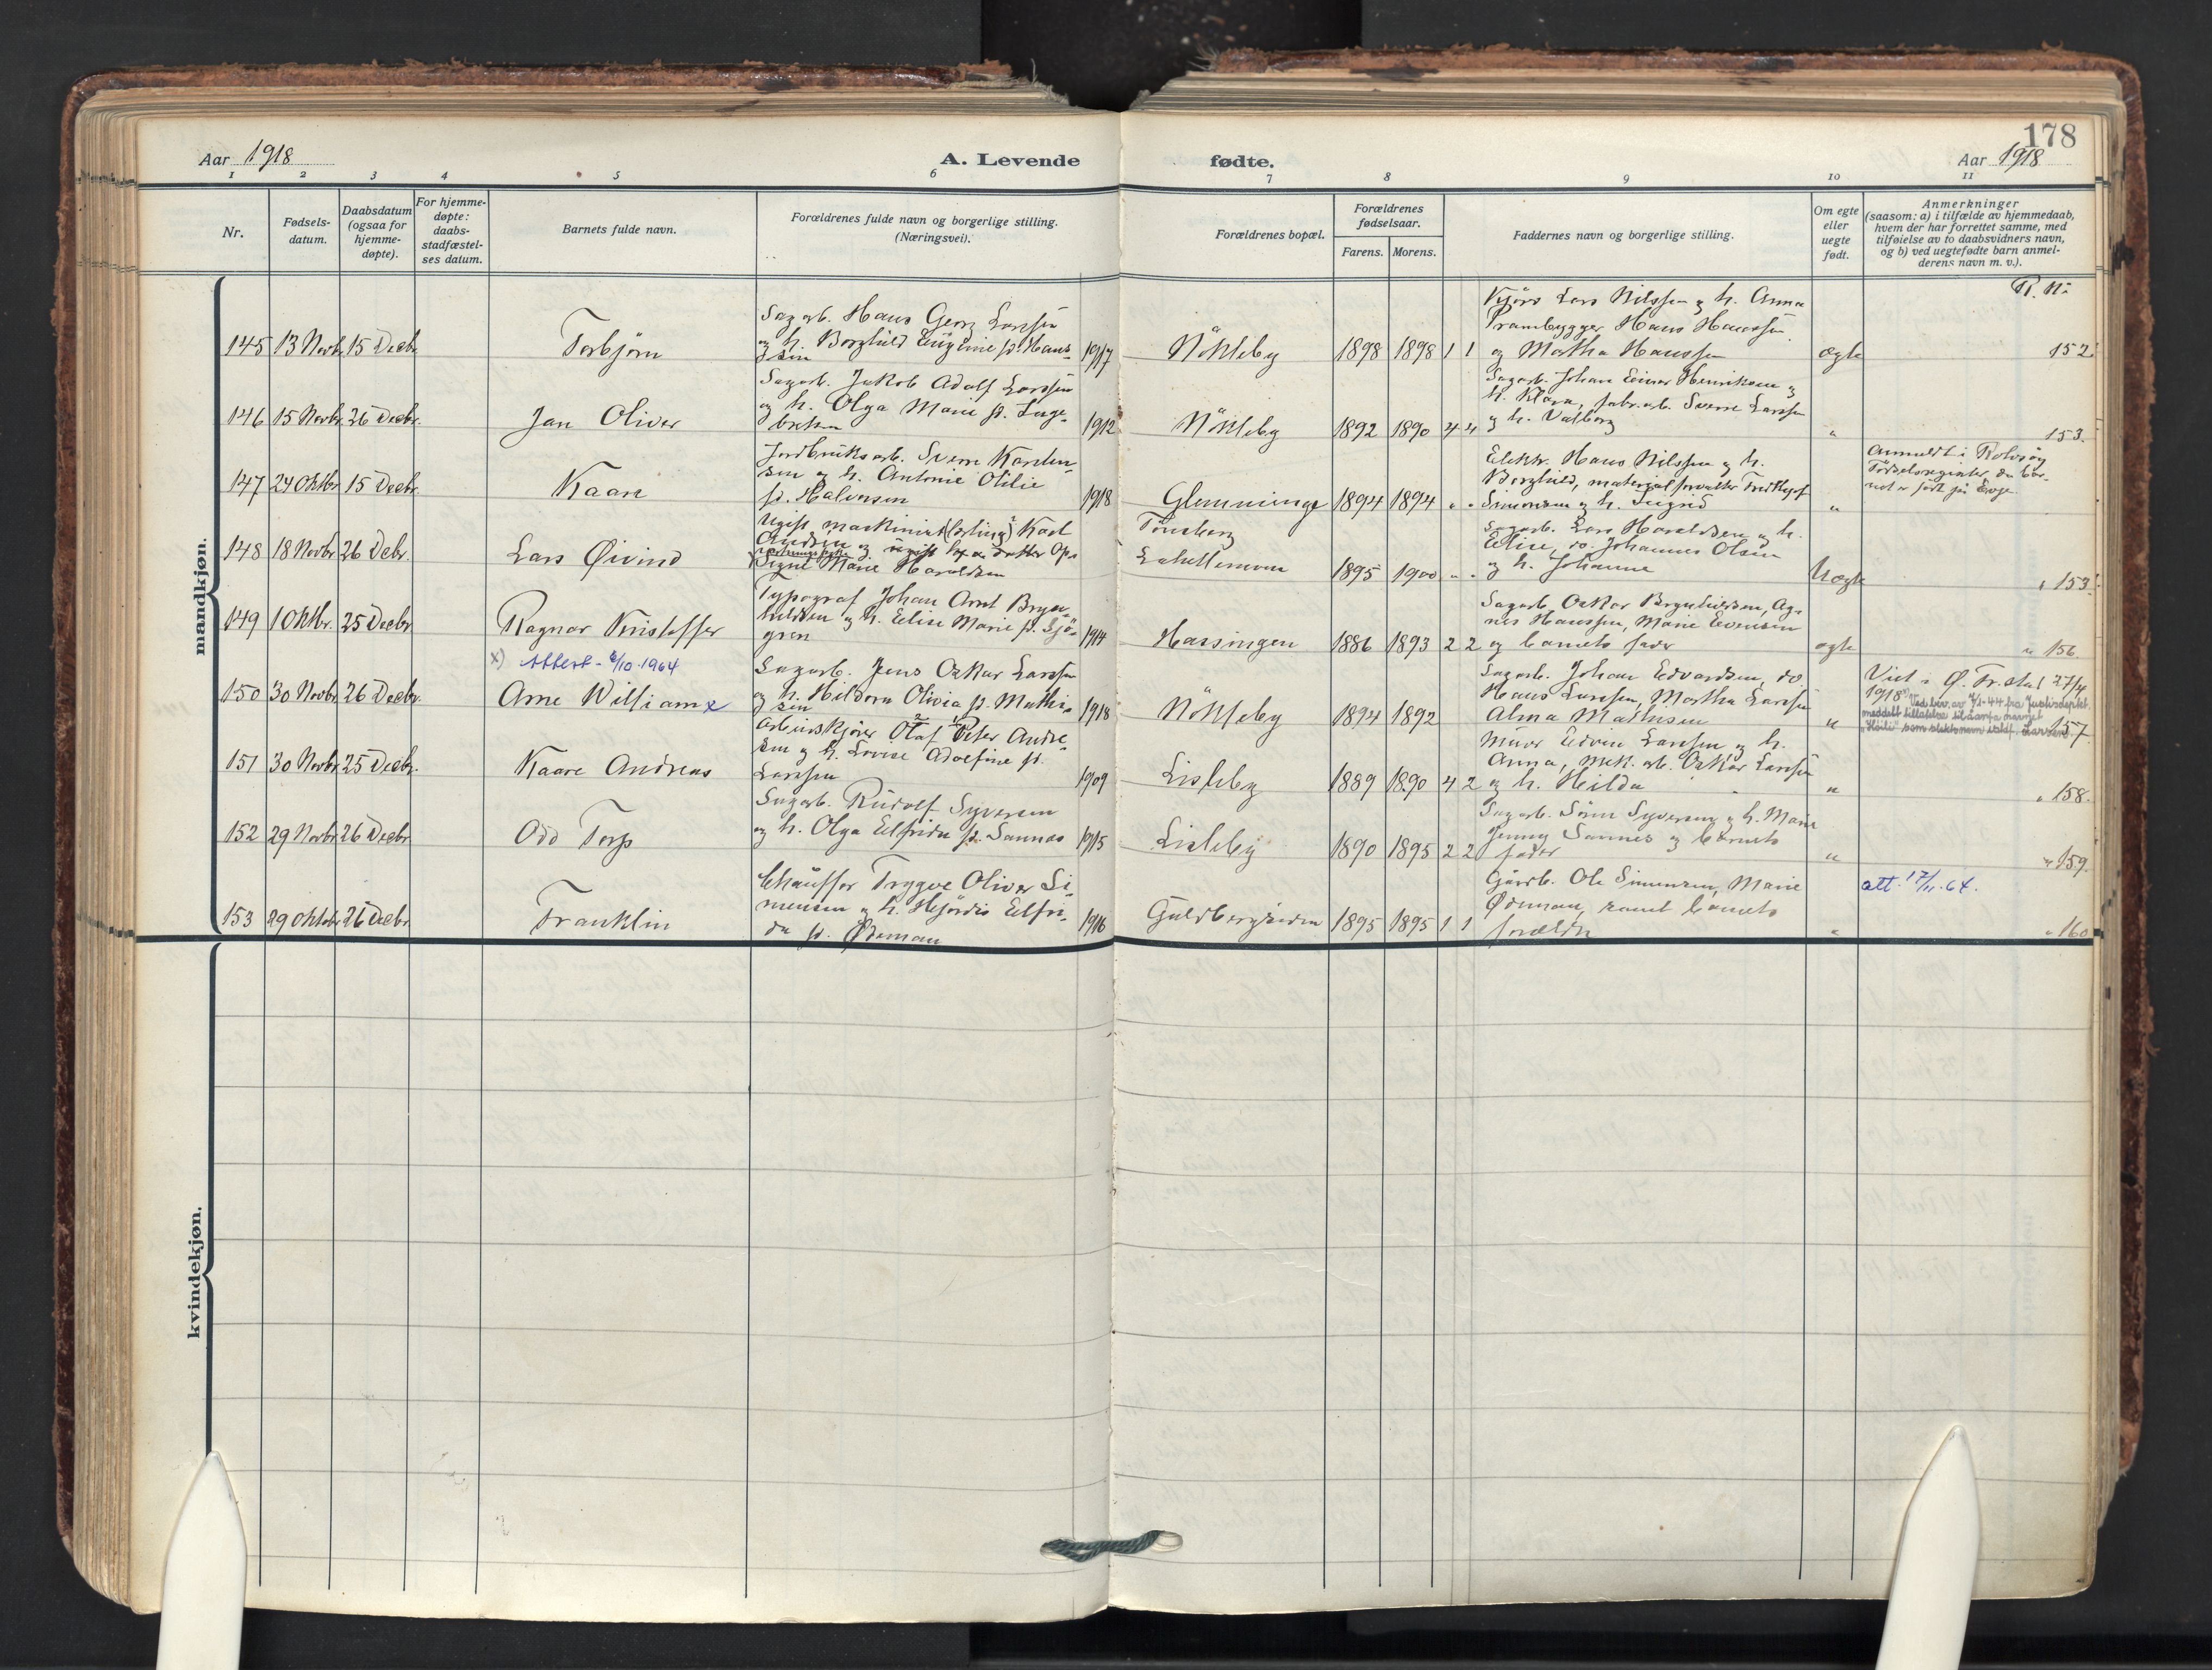 178
Aar 1918
A. Levende
fødte.
Aar 1918
1 2 3 4 5 6 7 8 9 10 11
Nr.
Fødsels-
datum.
Daabsdatum
(ogsaa for
hjemme-
døpte).
For hjemme-
døpte:
daabs-
stadfæstel-
ses datum.
Barnets fulde navn.
Forældrenes fulde navn og borgerlige stilling.
(Næringsvei).
Forældrenes bopæl.
Forældrenes
fødselsaar.
Farens. Morens.
Faddernes navn og borgerlige stilling.
Om egte
eller
uegte
født.
Anmerkninger
(saasom: a) i tilfælde av hjemmedaab,
hvem der har forrettet samme, med
tilføielse av to daabsvidners navn,
og b) ved uegtefødte barn anmel-
derens navn m. v.).
mandkjøn.
145 13 Novb. 15 Decbr
Torbjørn
Sagarb. Hans Georg Larssen
og h. Borghild Eugenie f. Hans-
sen 1917
Nökleby 1898 1898 1 1
Kjörs Lars Nilssen og h. Anna
Prambygger Hans Hanssen
og Martha Hanssen
ægte
R. Nr
152
146 15 Novbr. 26 Decbr.
Jan Oliver
Sagarb. Jakob Adolf Larssen
og h. Olga Marie f. Inge-
bretsen 1912
Nökleby 1892 1890 4 4
Sagarb. Johan Einar Henriksen og
h. Klara, fabr.arb. Sverre Larssen
og h. Valborg
"
153.
147 24 Oktbr 15 Decbr.
Kaare
Jordbruksarb. Sverre Karlen-
sen og h. Antonie Otilie
f. Halvorsen 1918
Glemminge 1894 1894 " "
Elektr. Hans Nilssen og h.
Borghild, materialforvalter Fredthjof
Simonsen og h. Sigrid
"
Anmeldt i Rolvsøy
Fødselsregister, da bar-
net er født på Evje.
148 18 Novbr. 26 Debr.
Lars Øivind
Ugift maskinist (lærling) Karl
Andsen og ugift
Signe Marie Haraldsen
Tønsberg
1895 1900 " "
Sagarb. Lars Haraldsen og h.
Elise, do. Johannes Olsen
og h. Johanne
Uægte
" 153.
149 1 Oktbr. 25 Decbr
Ragnar Kristoffer
Typograf Johan Arnt Bryn-
hildsen og h. Elise Marie f. Sjö-
gren 1914
Hassingen 1886 1893 2 2
Sagarb. Oskar Brynhildsen, Ag-
nes Hanssen, Marie Evensen
og barnets fader
ægte
" 156.
x) Attest - 6/10-1964
150 30 Novbr. 26 Decbr.
Arne William x
Sagarb. Jens Oskar Larssen
og h. Hildora Olivia f. Mathi-
sen 1918
Nökleby 1894 1892
Sagarb. Johan Edvardsen, do.
Hans Larssen, Martha Larssen
Alma Mathisen
"
Viet i Ø. Fr.stad 27/4
1918
x) Ved bev. av 4/1-44 fra Justisdeptet
meddelt tillatelse til å anta navnet
som slektsnavn istf. Larssen.
157
151 30 Novbr. 25 Decbr.
Kaare Andreas
Arbeidskjører Olaf Peter Andre-
sen og h. Lovise Adolfine f.
Larssen 1909
Lisleby 1889 1890 4 2
Murer Edvin Larssen og h.
Anna, mek. arb. Oskar Larssen
og h. Hilda
"
" 158.
152 29 Novbr. 26 Decbr.
Odd Torp
Sagarb. Rudolf Syversen
og h. Olga Elfrida f. Sannæs 1915
Lisleby 1890 1895 2 2
Sagarb. Søren Syversen og h. Marie
Jenny Sannes og barnets
fader
"
" 159.
153 29 Oktobr 26 Decbr.
Franklin
Chauffør Trygve Oliver Si-
mensen og h. Hjørdis Elfri-
da f. Ødeman 1916
Guldbergsiden 1895 1895 1 1
Gaardb. Ole Simensen, Marie
Ødeman, samt barnets
forældre
"
att. 17/11-64.
" 160
kvindekjøn.